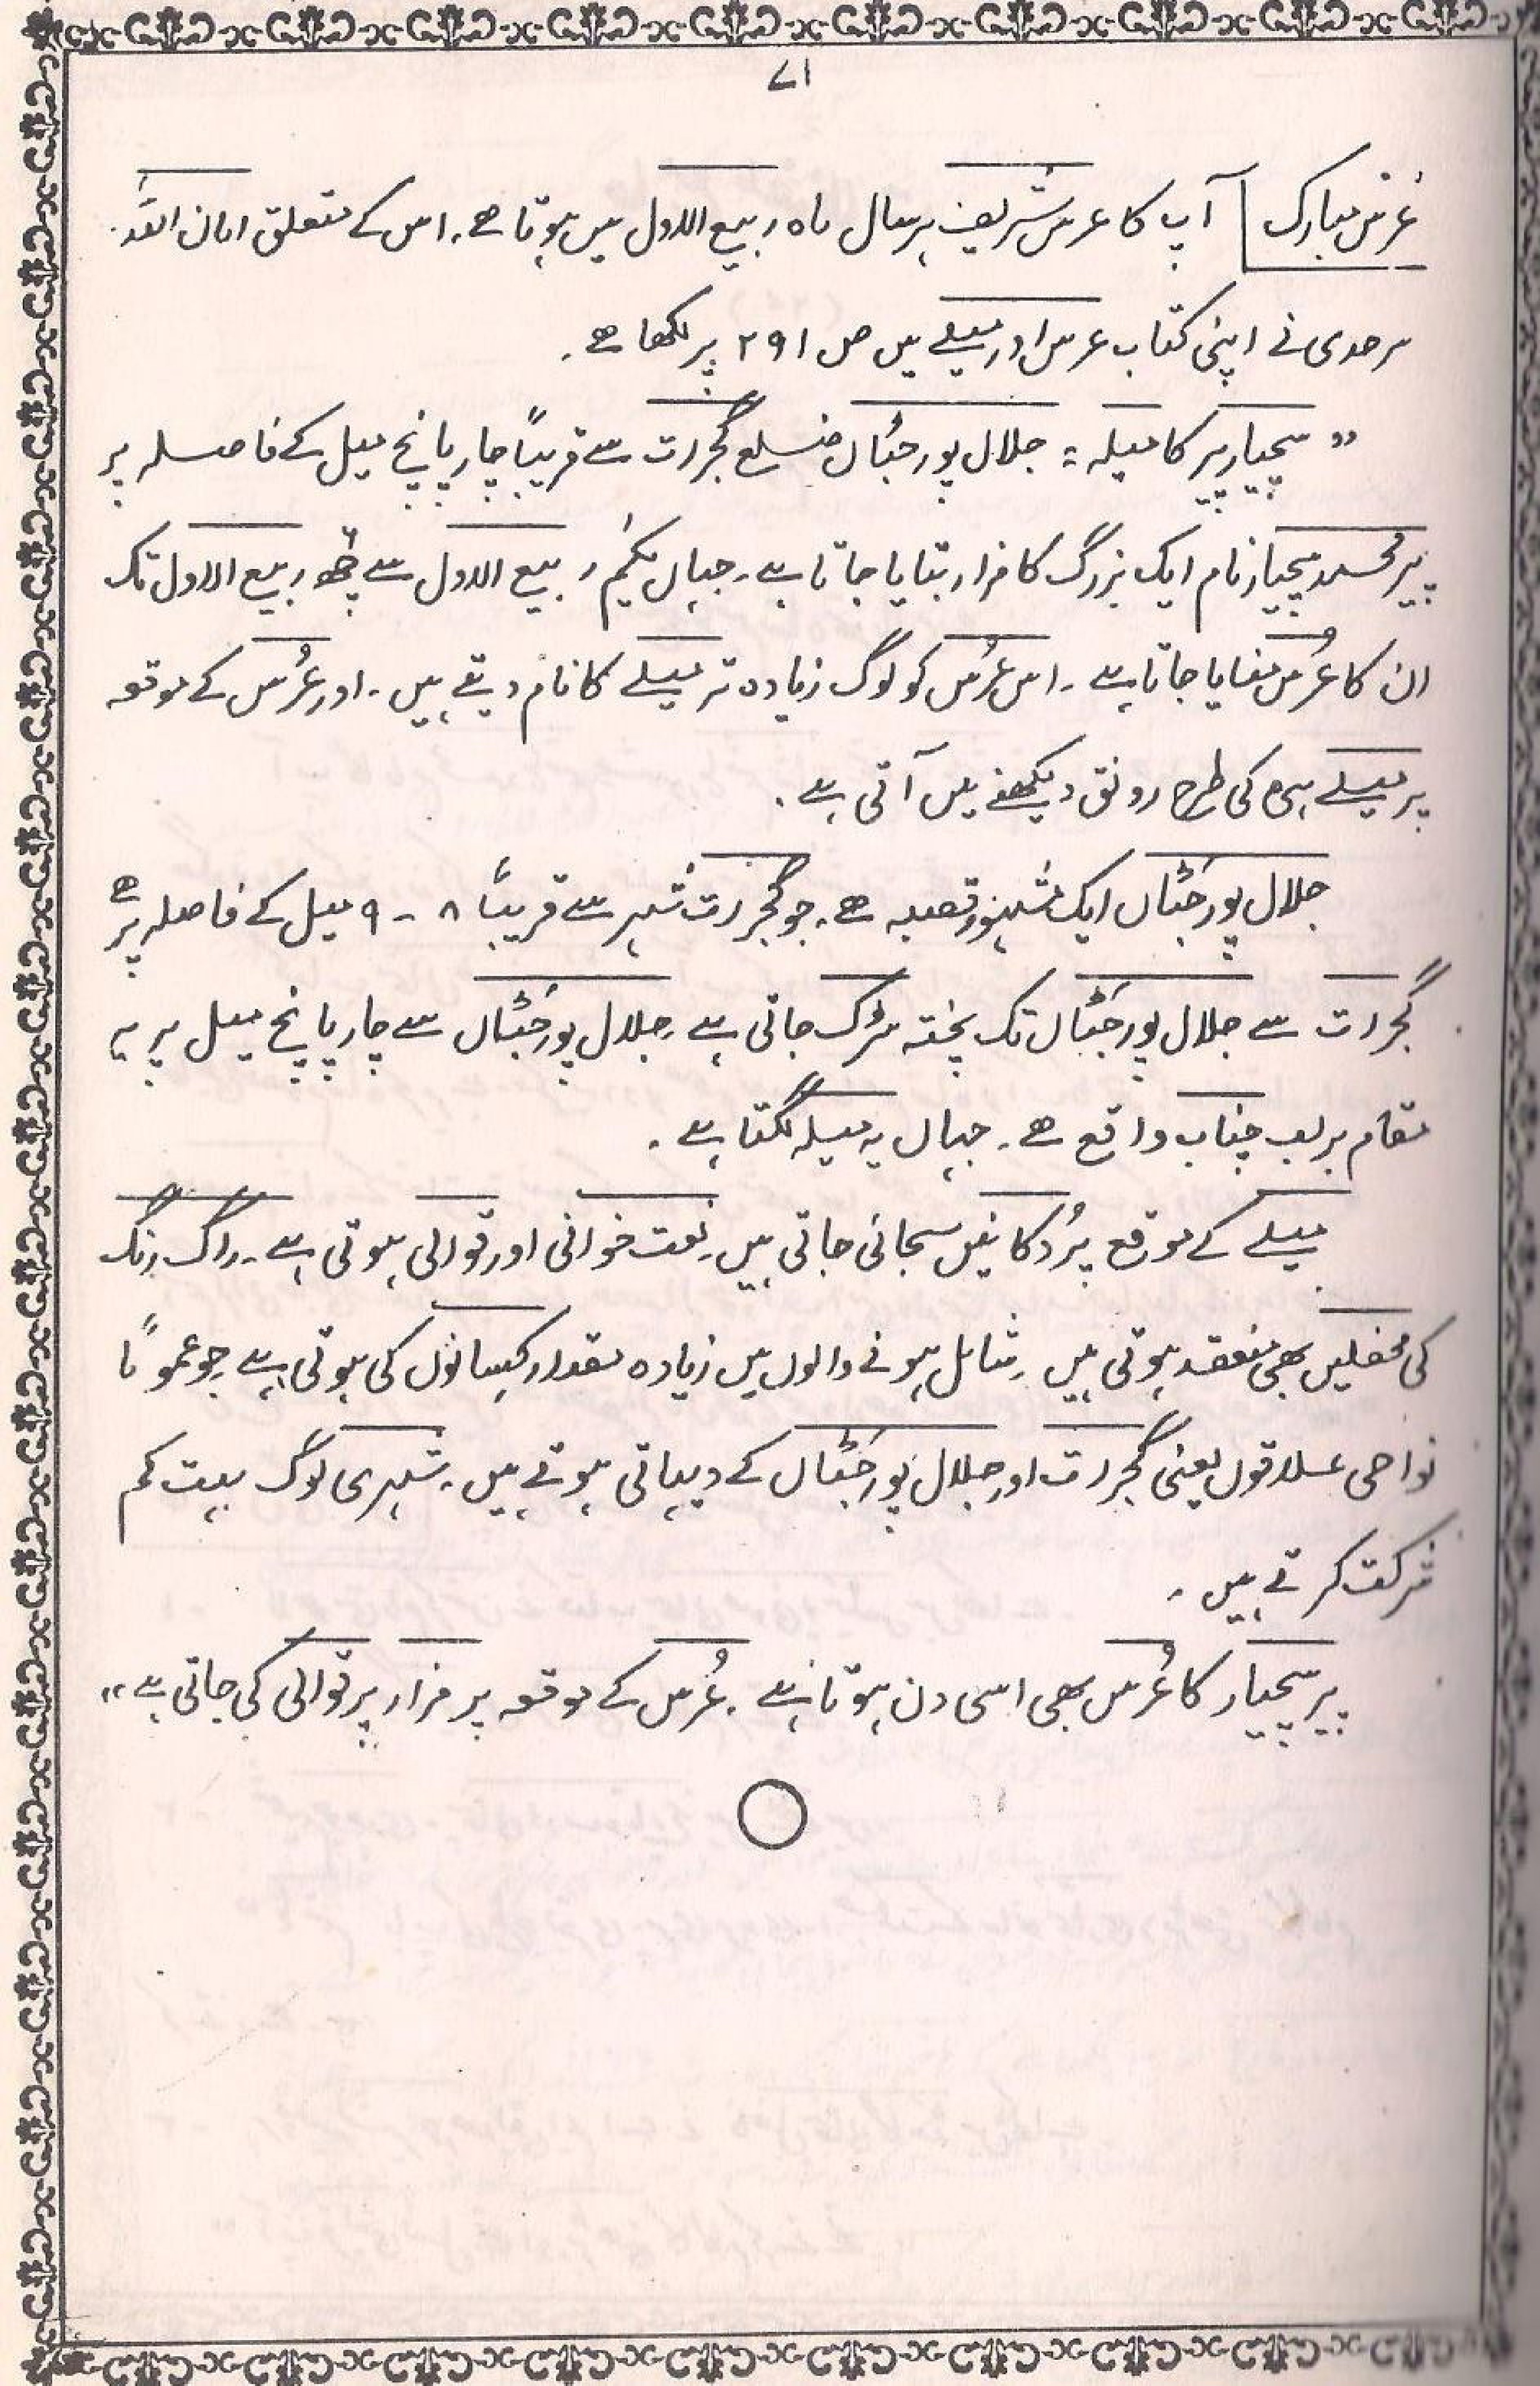 ۷۱
عرس مبارک آپ کا عرس شریف ہر سال ماہ ربیع الاول میں ہوتا ہے۔ اس کے متعلق امان اللہ
سرحدی نے اپنی کتاب عرس اور میلے میں ص ۲۹۱ پر لکھا ہے۔
" سچیار پیر کا میلہ : جلال پور جٹاں ضلع گجرات سے قریباً چار پانچ میل کے فاصلہ پر
پیر محمد سچیار نام ایک بزرگ کا مزار بتایا جاتا ہے۔ جہاں یکم ربیع الاول سے چھ ربیع الاول تک
ان کا عُرس منایا جاتا ہے۔ اس عُرس کو لوگ زیادہ تر میلے کا نام دیتے ہیں۔ اور عُرس کے موقعہ
پر میلے ہی کی طرح رونق دیکھنے میں آتی ہے۔
جلال پور جٹاں ایک مشہور قصبہ ہے۔ جو گجرات شہر سے قریباً ۸ - ۹ میل کے فاصلہ پر ہے
گجرات سے جلال پور جٹاں تک پختہ سڑک جاتی ہے۔ جلال پور جٹاں سے چار پانچ میل پر یہ
مقام بر لب چناب واقع ہے۔ جہاں یہ میلہ لگتا ہے۔
میلے کے موقع پر دُکانیں سجائی جاتی ہیں۔ نعت خوانی اور قوالی ہوتی ہے۔ راگ رنگ
کی محفلیں بھی منعقد ہوتی ہیں۔ شامل ہونے والوں میں زیادہ مقدار کسانوں کی ہوتی ہے جو عموماً
نواحی علاقوں یعنی گجرات اور جلال پور جٹاں کے دیہاتی ہوتے ہیں۔ شہری لوگ بہت کم
شرکت کرتے ہیں۔
پیر سچیار کا عُرس بھی اسی دن ہوتا ہے۔ عُرس کے موقعہ پر مزار پر قوالی کی جاتی ہے "